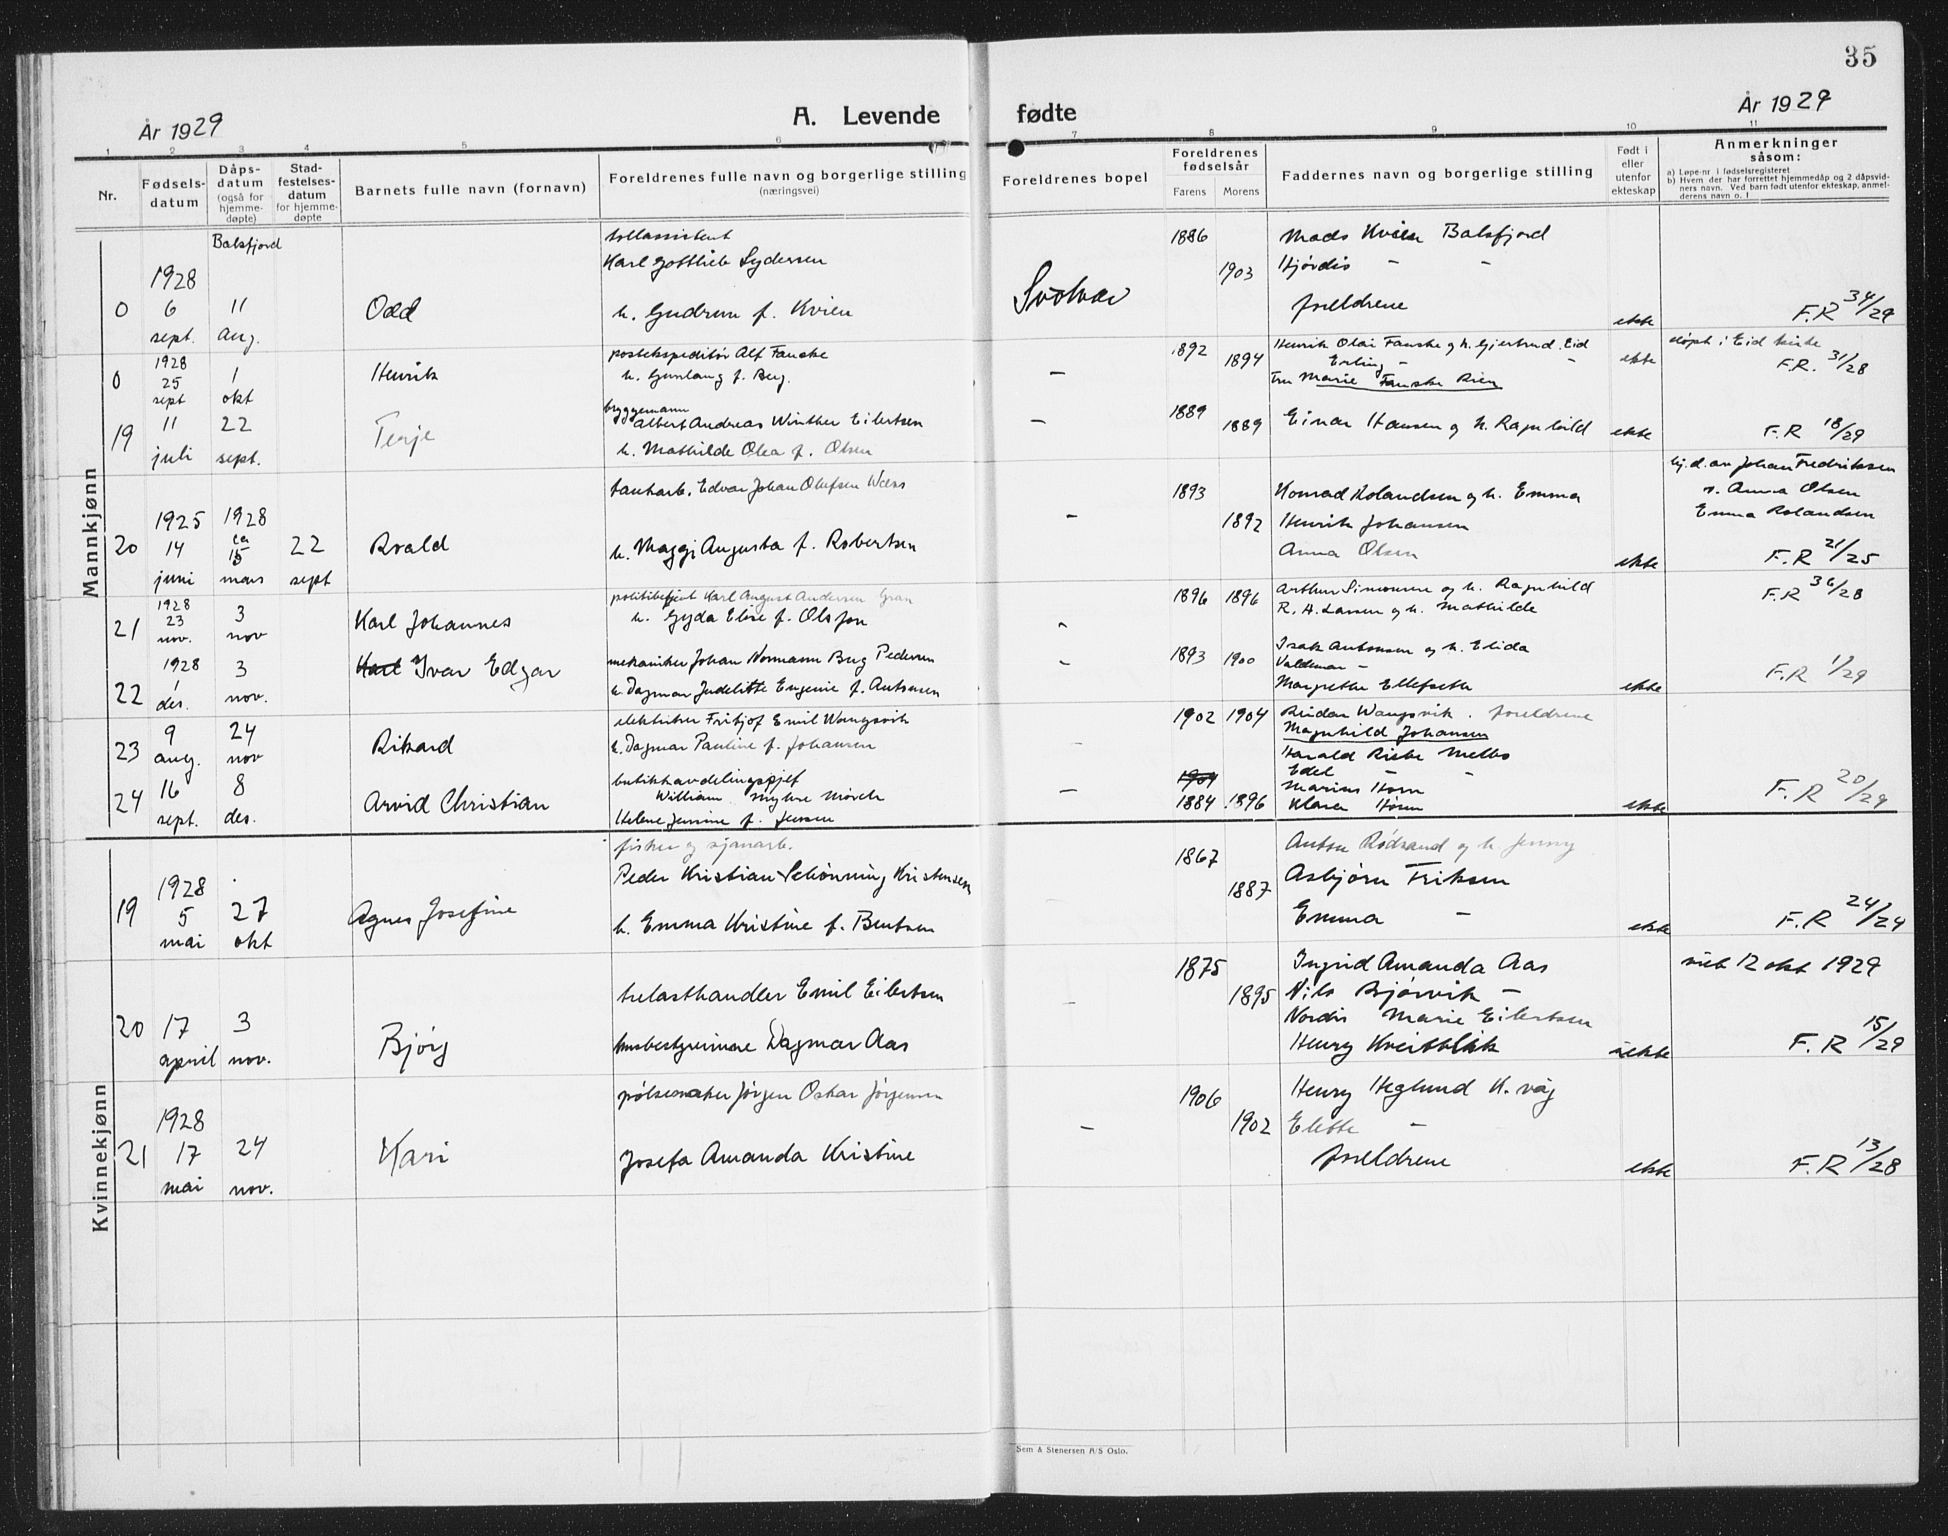 35
År 1929
A. Levende fødte
År 1929
1 2 3 4 5 6 7 8 9 10 11
Nr.
Fødsels-
datum
Dåps-
datum
(også for
hjemme-
døpte)
Stad-
festelses-
datum
for hjemme-
døpte
Barnets fulle navn (fornavn)
Foreldrenes fulle navn og borgerlige stilling
(næringsvei)
Foreldrenes bopel
Foreldrenes
fødselsår
Farens Morens
Faddernes navn og borgerlige stilling
Født i
eller
utenfor
ekteskap
Anmerkninger
såsom:
a) Løpe-nr i fødselsregisteret
b) Hvem der har forrettet hjemmedåp og 2 dåpsvid-
ners navn. Ved barn født utenfor ekteskap, anmel-
derens navn o. l
Mannkjønn
Balsfjord
tollassistent
1886
Mads Kvien Balsfjord
Karl Gottlieb Sydersen
1928
1903
Hjørdis - -
0 6 11
Odd
h. Gudrun f. Kvien
Svolvær
foreldrene
ekte
F.R 34/29
sept. aug.
1928
postekspeditør Alf Fauske
1892
Henrik Olai Fauske og h. Gjertrud. Eid
ekte
døpt i Eid kirke
0 25 1
Henrik
h. Gunlaug f. Berg.
-
1894
Erling - -
F.R. 31/28
sept okt
Fru Marie Fauske Rien
11 22
byggemann
1889
19
Terje
Albert Andreas Winther Eilertsen
-
1889
Einar Hansen og h. Ragnhild
ekte
F.R 18/29
juli sept.
h. Mathilde Olea f. Olsen
hj.d. av Johan Fredriksen
tankarb. Edvar Johan Olufsen Wæss
1893
Konrad Rolandsen og h. Emma
v. Anna Olsen
1925 1928
-
1892
Henrik Johansen
Emma Rolandsen
20 14 ca 15 22
Roald
h. Maggi Augusta f. Robertsen
Anna Olsen
ekte
F.R 21/25
juni mars sept
1928
politibetjent Karl August Andersen Gran
1896 1896
Arthur Simonsen og h. Ragnhild
F.R 36/28
21 23 3
Karl Johannes
h. Gyda Elise f. Olsson
R. A. Larsen og h. Mathilde
nov. nov
1928 3
Karl Ivar Edgar
mekaniker Johan Normann Berg Pedersen
-
1893 1900
Isak Antonsen og h. Elida
Valdemar -
F.R 1/29
22 1 des. nov.
h. Dagmar Judelitte Eugenie f. Antonsen
Margrethe Ellefseth
ekte
9 24
elektriker Fritjof Emil Wangsvik
1902 1904
Reidar Wangsvik. foreldrene
23
Rikard
h. Dagmar Pauline f. Johansen
-
Magnhild Johansen
aug. nov
Harald Riebe Melbo
16 8
butikkavdelingssjef
1904
Edel - -
24
Arvid Christian
William Myhre Mörch
-
Marius Horn
F.R 20/29
sept. des.
Helene Jensine f. Jensen
1884 1896
Klara Horn
ekte
Kvinnekjønn
fisker og sjauarb.
1867
Anton Rødsand og h. Jenny
1928
Peder Kristian Schönning Kristensen
1887
Asbjørn Eriksen
19 5 27
Agnes Josefine
h. Emma Kristine f. Bentsen
Emma -
ekte
F.R 24/24
mai okt
1875
Ingrid Amanda Aas
viet 12 okt 1929
trelasthandler Emil Eilertsen
-
1895
Nils Bjørvik -
20 17 3
Nordis Marie Eilertsen
Bjørg
husbestyrerinne Dagmar Aas
Henry Kveitblik
uekte
F.R 15/29
april nov.
pølsemaker Jørgen Oskar Jørgensen
1906
Henry Heglund K. våg
1928
-
1902
Elette -
21 17 24
Kari
Josefa Amanda Kristine
foreldrene
ekte
F.R 13/28
mai nov.
Sem & Stenersen A/S Oslo.